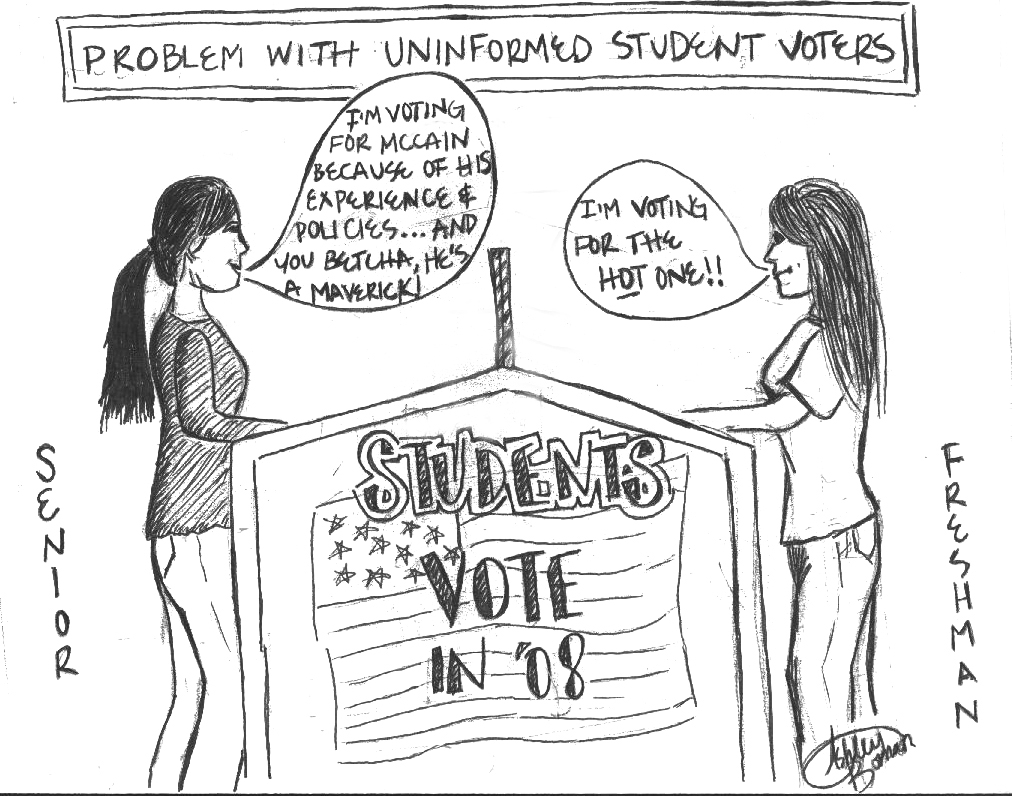 PROBLEM WITH UNINFORMED STUDENT VOTERS
I'M VOTING
FOR MCCAIN
BECAUSE OF HIS
EXPERIENCE &
POLICIES... AND
YOU BETCHA, HE'S
A MAVERICK!
I'M VOTING
FOR THE
HOT ONE!!
SENIOR
FRESHMAN
STUDENTS
VOTE
IN '08
Ashley